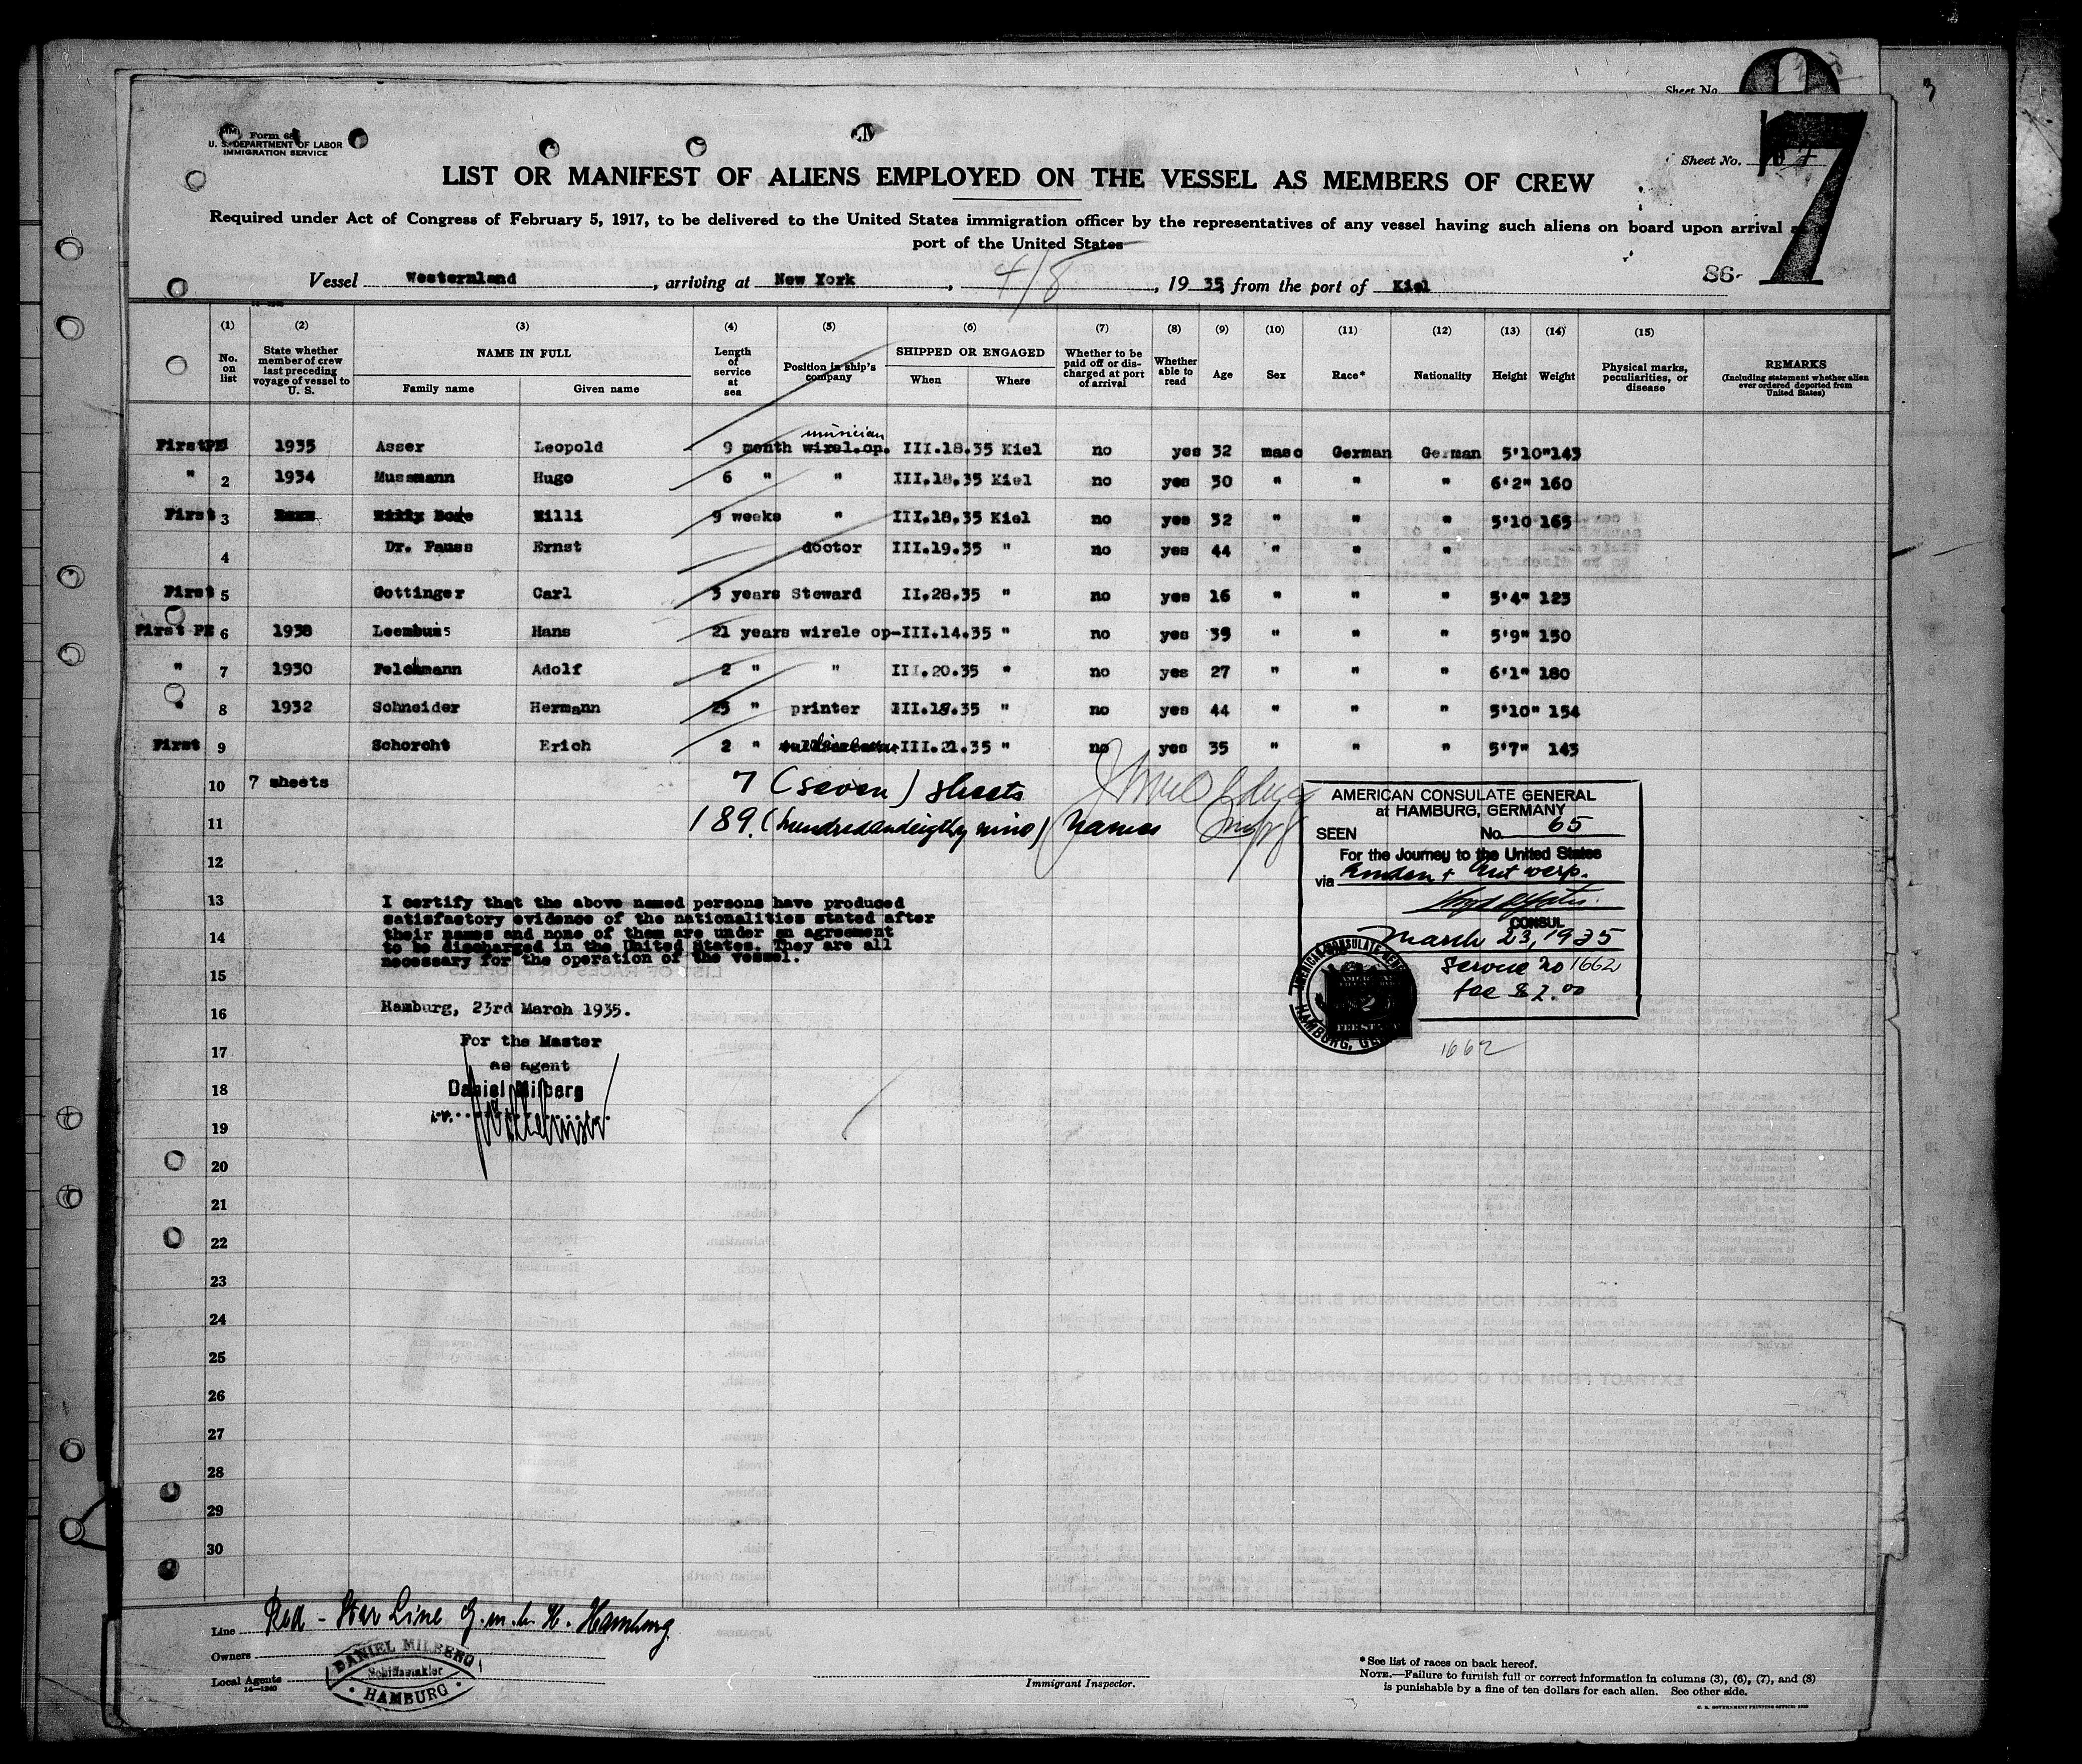 Sheet No.
Form 68
U. S. DEPARTMENT OF LABOR
IMMIGRATION SERVICE
Sheet No.
7
LIST OR MANIFEST OF ALIENS EMPLOYED ON THE VESSEL AS MEMBERS OF CREW
Required under Act of Congress of February 5, 1917, to be delivered to the United States immigration officer by the representatives of any vessel having such aliens on board upon arrival
port of the United States
86-
Vessel Westernland , arriving at New York , 4/8 , 19 35 from the port of Kiel
(1) (2) (3) (4) (5) (6) (7) (8) (9) (10) (11) (12) (13) (14) (15)
No. on list State whether member of crew last preceding voyage of vessel to U. S. NAME IN FULL Family name Given name Length of service at sea Position in ship's company SHIPPED OR ENGAGED When Where Whether to be paid off or discharged at port of arrival Whether able to read Age Sex Race* Nationality Height Weight Physical marks, peculiarities, or disease REMARKS (Including statement whether alien ever ordered deported from United States)
musician
First PE 1935 Asser Leopold 9 month wirel.op. III.18.35 Kiel no yes 32 masc German German 5'10" 143
" 2 1934 Mussmann Hugo 6 " " III.18.35 Kiel no yes 30 " " " 6'2" 160
First 3 Willi 9 weeks " III.18.35 Kiel no yes 32 " " " 5'10 165
4 Dr. Fauss Ernst doctor III.19.35 " no yes 44 " " "
First 5 Gottinger Carl 3 years Steward II.28.35 " no yes 16 " " " 5'4" 123
First PE 6 1938 Leembuis Hans 21 years wirele op-III.14.35 " no yes 39 " " " 5'9" 150
" 7 1930 Felchmann Adolf 2 " " III.20.35 " no yes 27 " " " 6'1" 180
" 8 1932 Schneider Hermann 25 " printer III.18.35 " no yes 44 " " " 5'10" 154
First 9 Schorcht Erich 2 " III.21.35 " no yes 35 " " " 5'7" 143
10 7 sheets 7 (seven) sheets
11 189. (hundredandeigthy nine) names
12
13
14
15
16
17
18
19
20
21
22
23
24
25
26
27
28
29
30
I certify that the above named persons have produced
satisfactory evidence of the nationalities stated after
their names and none of them are under an agreement
to be discharged in the United States. They are all
necessary for the operation of the vessel.
Hamburg, 23rd March 1935.
For the Master
as agent
Daniel Milberg
i.v.
AMERICAN CONSULATE GENERAL
at HAMBURG, GERMANY
SEEN No. 65
For the Journey to the United States
via Emden + Antwerp.
CONSUL
March 23, 1935
Service no 1662
fee $2.00
1662
Line Red-Star Line G.m.b.H. Hamburg
Owners
Local Agents
14—1240
DANIEL MILBERG
Schiffsmakler
HAMBURG
Immigrant Inspector.
* See list of races on back hereof.
NOTE.—Failure to furnish full or correct information in columns (3), (6), (7), and (8)
is punishable by a fine of ten dollars for each alien. See other side.
U. S. GOVERNMENT PRINTING OFFICE